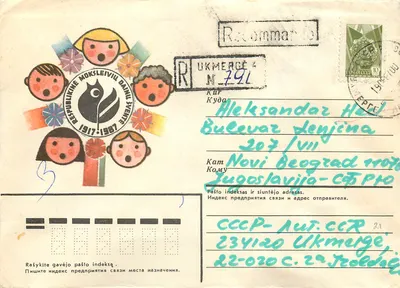 Recommandé
R
UKMERGĖ 4
N 791
RESPUBLIKINĖ MOKSLEIVIŲ DAINŲ ŠVENTĖ
1917-1987
Kur
Куда
Aleksandar
Bulevar Lenjina
207/VII
Kam
Кому
Novi Beograd 11070
Jugoslavija-СФРЮ
Pašto indeksas ir siuntėjo adresas.
Индекс предприятия связи и адрес отправителя.
СССР-Лит. ССР
234120 Ukmergė,
22-020 С.
Rašykite gavėjo pašto indeksą.
Пишите индекс предприятия связи места назначения.